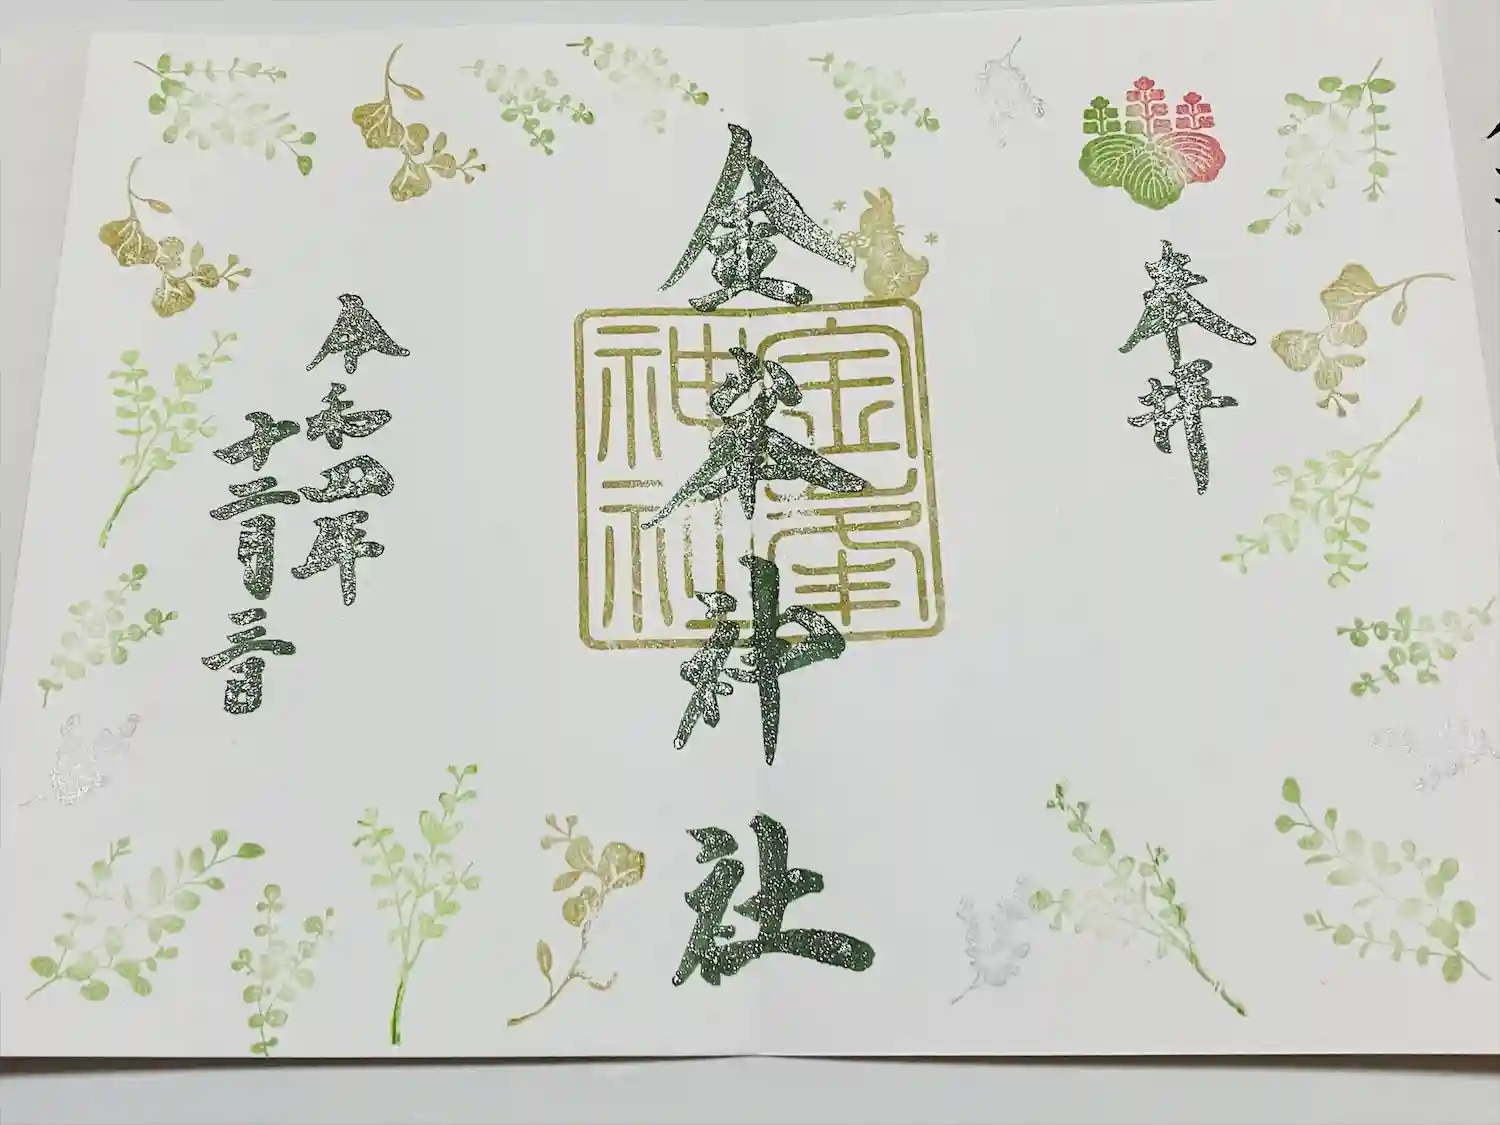 奉拝
金峯神社
金峯神社
令和四年
十二月三日